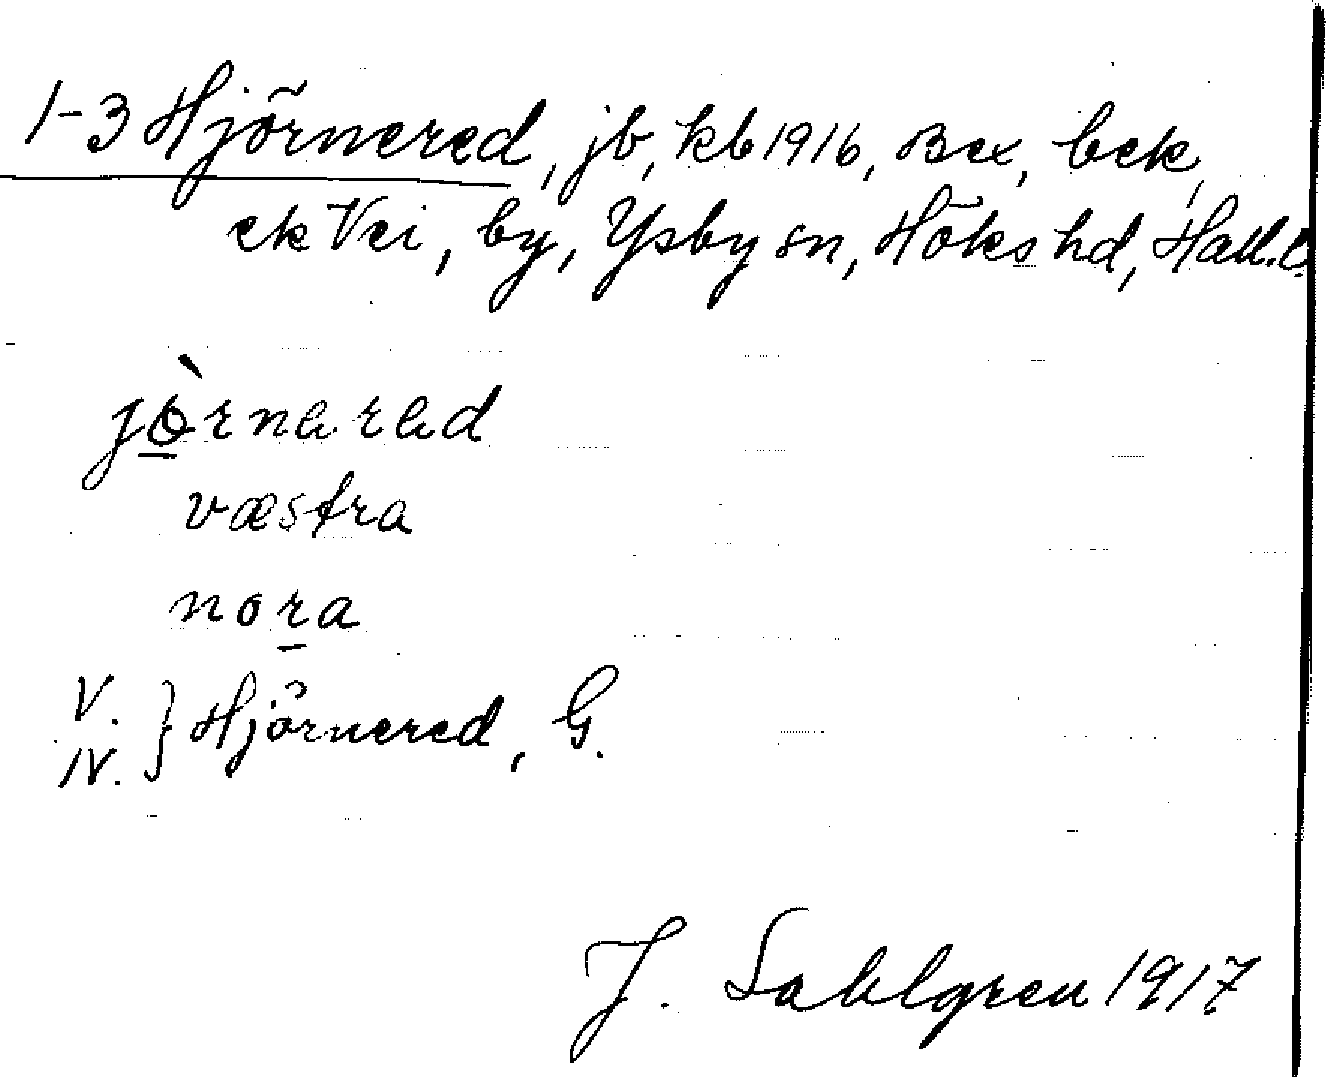 1-3 Hjörnered, jb, kb 1916, Bex, bek,
ek Vei, by, Ysby sn, Höks hd, Hall.
jö̀rnarad
væstra
nora
V. } Hjörnered, G.
IV.
J. Sahlgren 1917